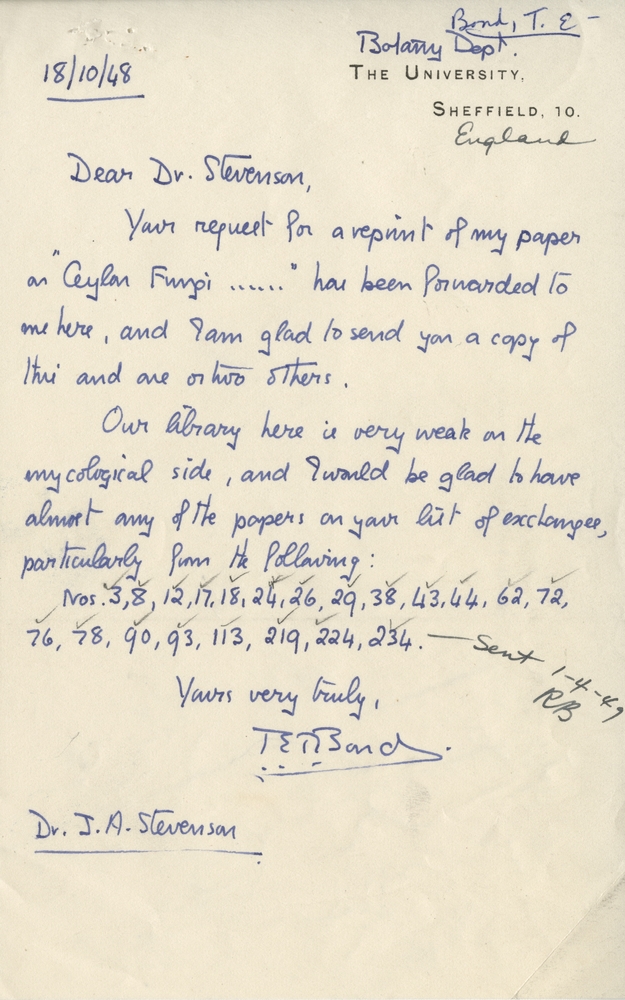 Bond, T. E -
Botany Dept.
18/10/48
THE UNIVERSITY,
SHEFFIELD, 10.
England
Dear Dr. Stevenson,
Your request for a reprint of my paper
on "Ceylon Fungi ......" has been forwarded to
me here, and I am glad to send you a copy of
this and one or two others.
Our library here is very weak on the
mycological side, and I would be glad to have
almost any of the papers on your list of exchanges,
particularly from the following:
Nos. 3, 8, 12, 17, 18, 24, 26, 29, 38, 43, 44, 62, 72,
76, 78, 90, 93, 113, 219, 224, 234. — Sent 1-4-49
RB
Yours very truly,
T E T Bond.
Dr. J. A. Stevenson